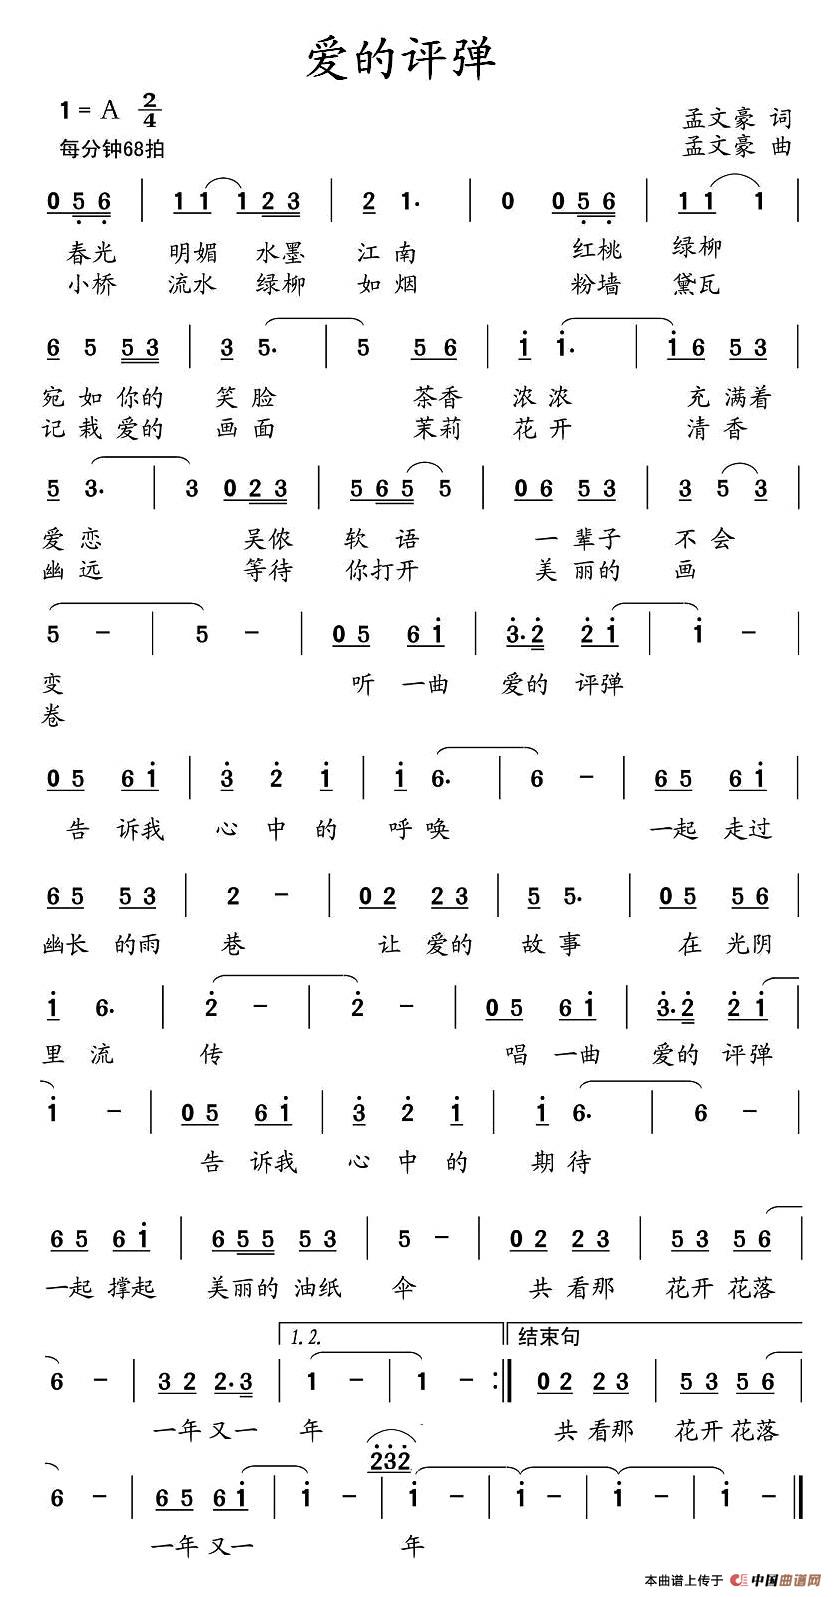 爱的评弹
1 = A 2/4
孟文豪 词
每分钟68拍
孟文豪 曲
0 5 6 | 1 1 1 2 3 | 2 1. | 0 0 5 6 | 1 1 1 |
春光 明媚 水墨 江南 红桃 绿柳
小桥 流水 绿柳 如烟 粉墙 黛瓦
6 5 5 3 | 3 5. | 5 5 6 | 1 1. | 1 6 5 3 |
宛如你的 笑脸 茶香 浓浓 充满着
记载爱的 画面 茉莉 花开 清香
5 3. | 3 0 2 3 | 5 6 5 5 | 0 6 5 3 | 3 5 3 |
爱恋 吴侬 软语 一辈子 不会
幽远 等待 你打开 美丽的 画
5 - | 5 - | 0 5 6 1 | 3. 2 2 1 | 1 - |
变 听 一曲 爱的 评弹
卷
0 5 6 1 | 3 2 1 | 1 6. | 6 - | 6 5 6 1 |
告 诉我 心中的 呼唤 一起 走过
6 5 5 3 | 2 - | 0 2 2 3 | 5 5. | 0 5 5 6 |
幽长 的雨 巷 让 爱的 故事 在 光阴
1 6. | 2 - | 2 - | 0 5 6 1 | 3. 2 2 1 |
里流 传 唱 一曲 爱的 评弹
1 - | 0 5 6 1 | 3 2 1 | 1 6. | 6 - |
告 诉我 心中的 期待
6 5 6 1 | 6 5 5 5 3 | 5 - | 0 2 2 3 | 5 3 5 6 |
一起 撑起 美丽的 油纸 伞 共 看那 花开 花落
1. 2. 结束句
6 - | 3 2 2. 3 | 1 - | 1 - :| 0 2 2 3 | 5 3 5 6 |
一年 又一 年 共 看那 花开 花落
2 3 2
6 - | 6 5 6 1 | 1 - | 1 - | 1 - | 1 - | 1 - ||
一年 又一 年
本曲谱上传于 中国曲谱网